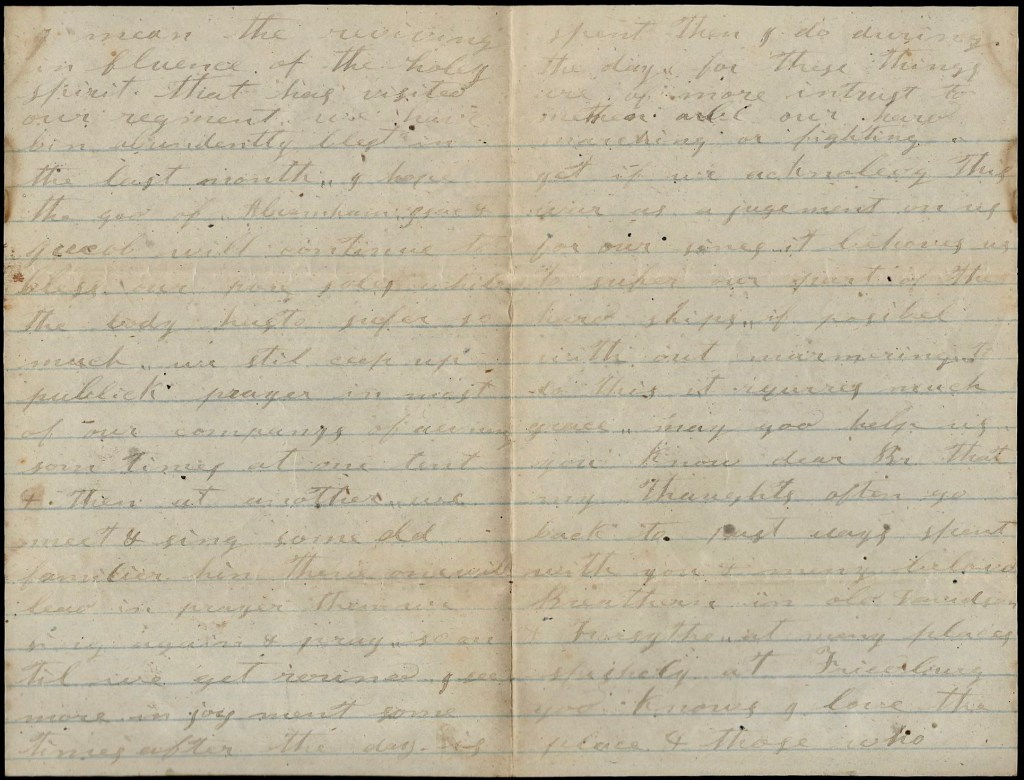 I mean the reviving
in fluence of the holy
spirit that has visited
our regment. we have
bin abundently blest in
the last month,, I hope
the god of Abramham isaac &
jacob will continue to
bless our pore soles while
the body hasto sufer so
much,, we stil ceep up
publick prayer in most
of our companys of an evning
som times at one tent
& then at another,, we
meet & sing some old
familier him then one will
lead in prayer then we
sing again & pray,, so on
til we get rouned I see
more in joy ment some
times after the day is
spent then I do during
the day,, for these things
are of more intrust to
me then all our hard
marching or fighting,,
yet if we acknoledg this
war as a jugement on us
for our sines it behoves us
to sufer our part of the
hard ships,, if posibel
with out murmuring, &
to do this it requires much
grace,, may god help us
you know dear Br that
my thaughts often go
back to past days spent
with you & many beloved
Brethern in old Davidson
& Forsythe,, at many places
spishely at Friedburg
god knows I love the
place & those who